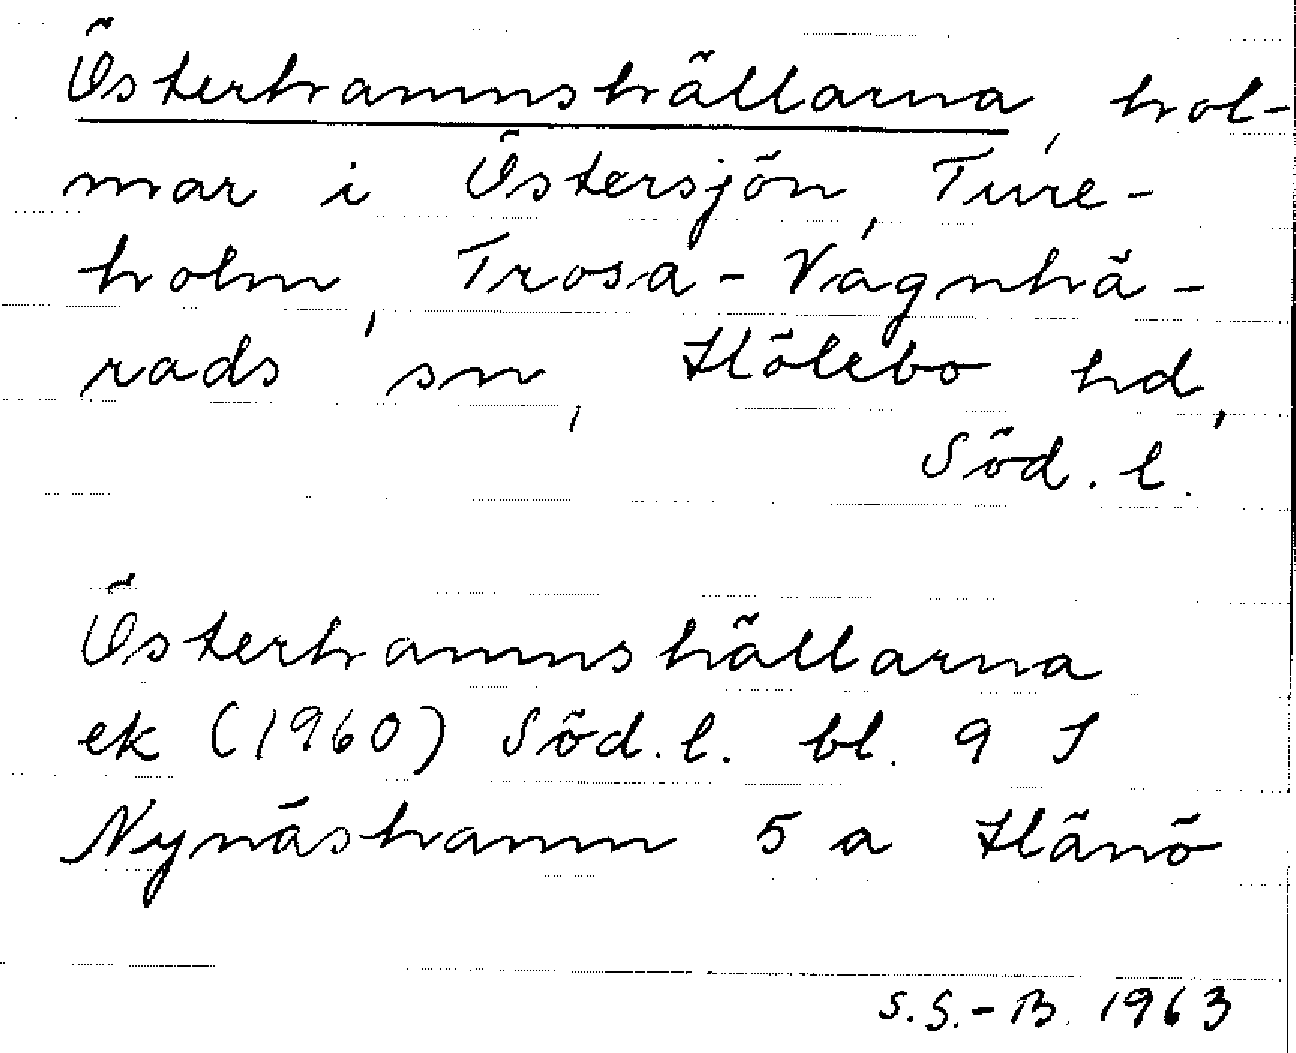 Österhamnshällarna, hol-
mar i Östersjön, Ture-
holm, Trosa-Vagnhä-
rads sn, Hölebo hd,
Söd. l.
Österhamnshällarna
ek (1960) Söd. l. bl. 9 I
Nynäshamn 5 a Hänö
S.S.-B. 1963